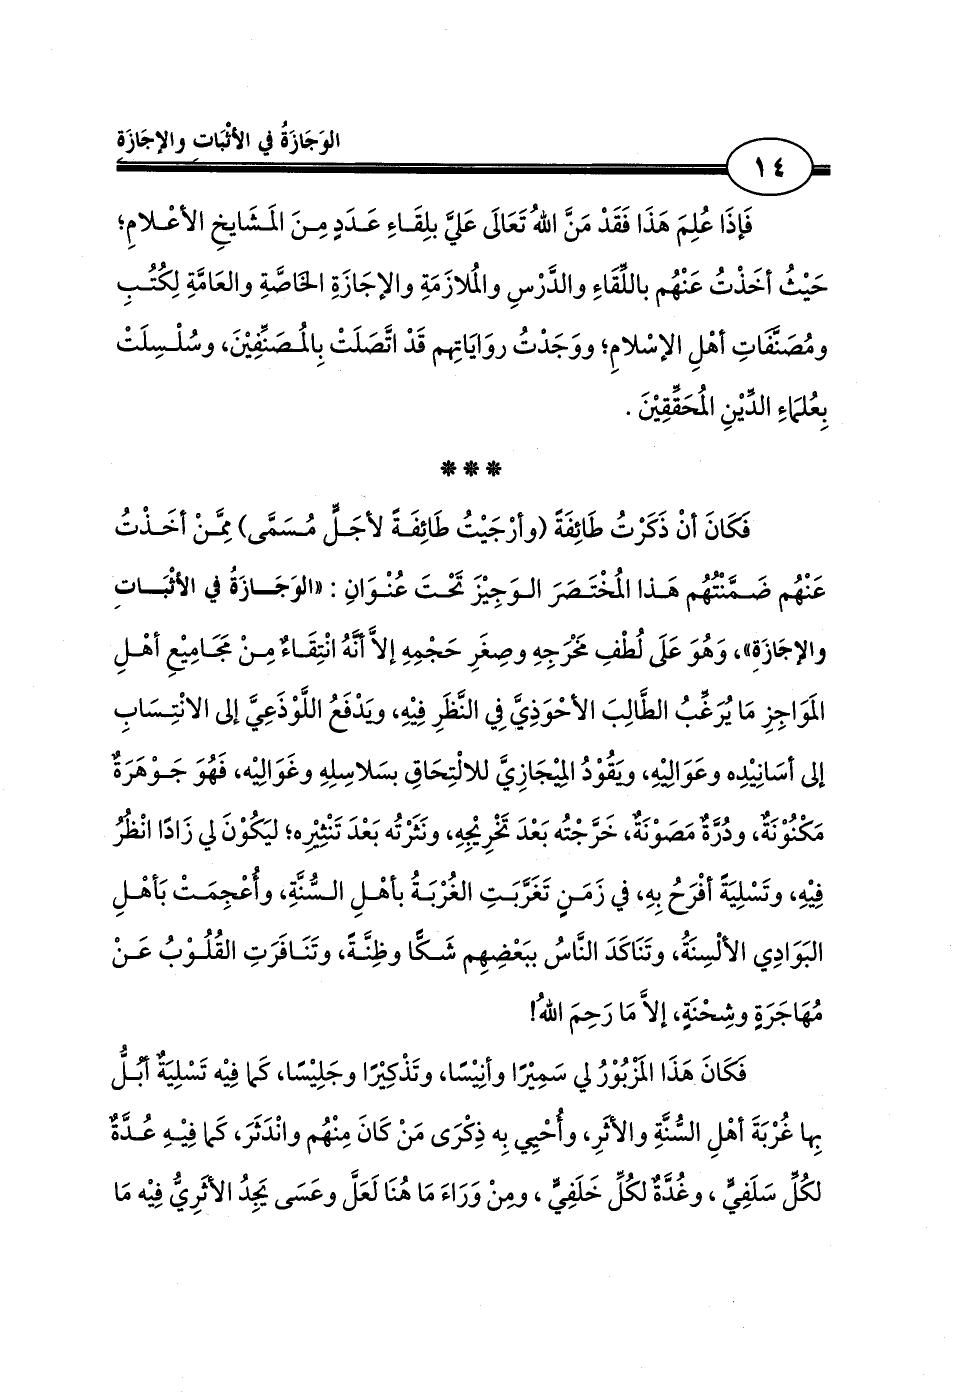 الوَجَازَةُ في الأثْبَاتِ والإجَازَةِ
١٤
فَإذَا عُلِمَ هَذَا فَقَدْ مَنَّ اللهُ تَعَالَى عَليَّ بلِقَاءِ عَدَدٍ مِنَ المَشَايِخِ الأعْلامِ؛
حَيْثُ أخَذْتُ عَنْهُم باللِّقَاءِ والدَّرْسِ والمُلازَمَةِ والإجَازَةِ الخَاصَّةِ والعَامَّةِ لِكُتُبِ
ومُصَنَّفَاتِ أهْلِ الإسْلامِ؛ ووَجَدْتُ روَايَاتِهم قَدْ اتَّصَلَتْ بِالمُصَنِّفِيْنَ، وسُلْسِلَتْ
بِعُلمَاءِ الدِّيْنِ المُحَقِّقِيْنَ .
***
فَكَانَ أنْ ذَكَرْتُ طَائِفَةً (وأرْجَيْتُ طَائِفَةً لأجَلٍّ مُسَمَّى) مِمَّنْ أخَذْتُ
عَنْهُم ضَمَّنْتُهُم هَذا المُخْتَصَرَ الوَجِيْزَ تَحْتَ عُنْوَانِ : «الوَجَازَةُ في الأثْبَاتِ
والإجَازَةِ»، وَهُوَ عَلَى لُطْفِ مَخْرَجِهِ وصِغَرِ حَجْمِهِ إلاَّ أنَّهُ انْتِقَاءٌ مِنْ مَجَامِيْعِ أهْلِ
المَوَاجِزِ مَا يُرَغِّبُ الطَّالِبَ الأحْوَذِيَّ في النَّظَرِ فِيْهِ، ويَدْفَعُ اللَّوْذَعِيَّ إلى الانْتِسَابِ
إلى أسَانِيْدِه وعَوَالِيْهِ، ويَقُوْدُ المِيْجَازِيَّ للالْتِحَاقِ بسَلاسِلِهِ وغَوَالِيْهِ، فَهُوَ جَوْهَرَةٌ
مَكْنُوْنَةٌ، ودُرَّةٌ مَصَوْنَةٌ، خَرَّجْتُه بَعْدَ تَخْرِيْجِهِ، ونَثَرْتُه بَعْدَ تَنْثِيْرِه؛ ليَكُوْنَ لي زَادًا انْظُرُ
فِيْهِ، وتَسْلِيَةً أفْرَحُ بِهِ، في زَمَنٍ تَغَرَّبَتِ الغُرْبَةُ بأهْلِ السُّنَّةِ، وأُعْجِمَتْ بَأهْلِ
البَوَادِي الألْسِنَةُ، وتَنَاكَدَ النَّاسُ ببَعْضِهِم شَكًّا وظِنَّةً، وتَنَافَرَتِ القُلُوْبُ عَنْ
مُهَاجَرَةٍ وشِحْنَةٍ، إلاَّ مَا رَحِمَ اللهُ!
فَكَانَ هَذَا المَزْبُوْرُ لي سَمِيْرًا وأنِيْسًا، وتَذْكِيْرًا وجَلِيْسًا، كَما فِيْه تَسْلِيَةٌ أبُلُّ
بِها غُرْبَةَ أهْلِ السُّنَّةِ والأثَرِ، وأُحْيِي بِه ذِكْرَى مَنْ كَانَ مِنْهُم وانْدَثَرَ، كَما فِيْهِ عُدَّةٌ
لكُلِّ سَلَفِيٍّ ، وغُدَّةٌ لكُلِّ خَلَفِيٍّ ، ومِنْ وَرَاءَ مَا هُنَا لَعَلَّ وعَسَى يَجِدُ الأثَرِيُّ فِيْه مَا